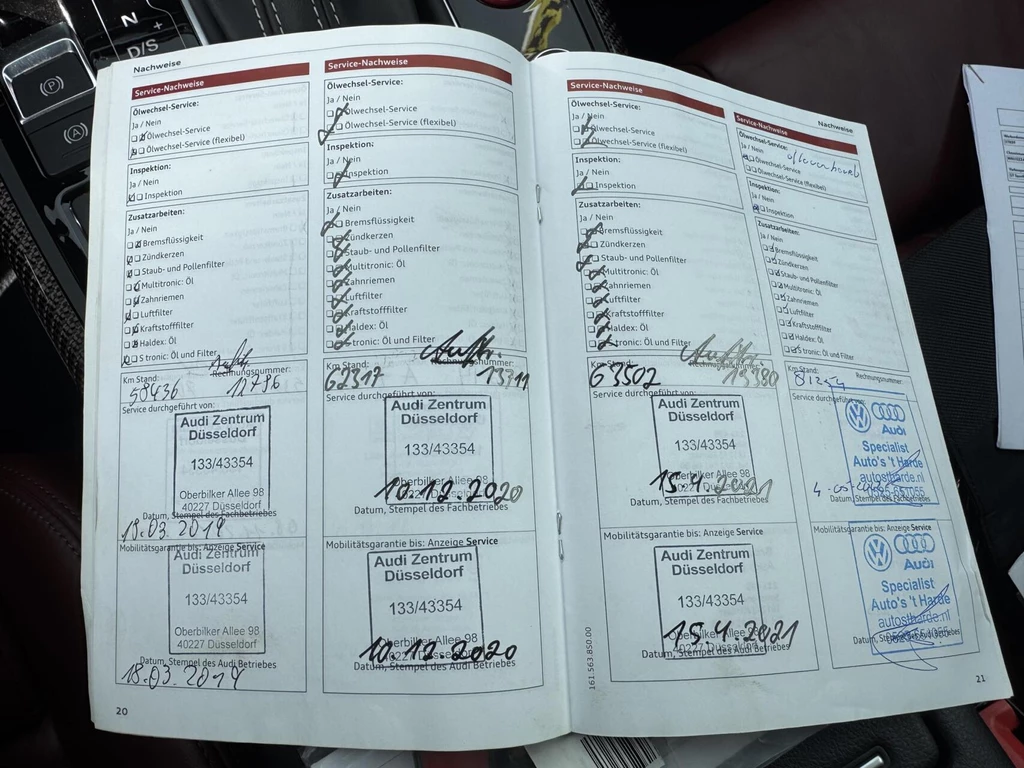 N
+
D/S
Nachweise
Service-Nachweise
Ölwechsel-Service:
Ja / Nein
Ölwechsel-Service
Ölwechsel-Service (flexibel)
Inspektion:
Ja / Nein
Inspektion
Zusatzarbeiten:
Ja / Nein
Bremsflüssigkeit
Zündkerzen
Staub- und Pollenfilter
Multitronic: Öl
Zahnriemen
Luftfilter
Kraftstofffilter
Haldex: Öl
S tronic: Öl und Filter
Km Stand:
Rechnungsnummer:
58436
12796
Service durchgeführt von:
Audi Zentrum
Düsseldorf
133/43354
Oberbilker Allee 98
40227 Düsseldorf
Datum, Stempel des Fachbetriebes
18.03.2019
Mobilitätsgarantie bis: Anzeige Service
Audi Zentrum
Düsseldorf
133/43354
Oberbilker Allee 98
40227 Düsseldorf
Datum, Stempel des Audi Betriebes
18.03.2019
20
Service-Nachweise
Ölwechsel-Service:
Ja / Nein
Ölwechsel-Service
Ölwechsel-Service (flexibel)
Inspektion:
Ja / Nein
Inspektion
Zusatzarbeiten:
Ja / Nein
Bremsflüssigkeit
Zündkerzen
Staub- und Pollenfilter
Multitronic: Öl
Zahnriemen
Luftfilter
Kraftstofffilter
Haldex: Öl
S tronic: Öl und Filter
Km Stand:
Rechnungsnummer:
62317
13911
Service durchgeführt von:
Audi Zentrum
Düsseldorf
133/43354
Oberbilker Allee 98
40227 Düsseldorf
10.12.2020
Datum, Stempel des Fachbetriebes
Mobilitätsgarantie bis: Anzeige Service
Audi Zentrum
Düsseldorf
133/43354
Oberbilker Allee 98
40227 Düsseldorf
10.12.2020
Datum, Stempel des Audi Betriebes
Service-Nachweise
Ölwechsel-Service:
Ja / Nein
Ölwechsel-Service
Ölwechsel-Service (flexibel)
Inspektion:
Ja / Nein
Inspektion
Zusatzarbeiten:
Ja / Nein
Bremsflüssigkeit
Zündkerzen
Staub- und Pollenfilter
Multitronic: Öl
Zahnriemen
Luftfilter
Kraftstofffilter
Haldex: Öl
S tronic: Öl und Filter
Km Stand:
Rechnungsnummer:
63502
13380
Service durchgeführt von:
Audi Zentrum
Düsseldorf
133/43354
Oberbilker Allee 98
40227 Düsseldorf
15.4.2021
Datum, Stempel des Fachbetriebes
Mobilitätsgarantie bis: Anzeige Service
Audi Zentrum
Düsseldorf
133/43354
Oberbilker Allee 98
40227 Düsseldorf
15.4.2021
Datum, Stempel des Audi Betriebes
161.563.850.00
Nachweise
Service-Nachweise
Ölwechsel-Service:
Ja / Nein
Ölwechsel-Service
Ölwechsel-Service (flexibel)
Inspektion:
Ja / Nein
Inspektion
Zusatzarbeiten:
Ja / Nein
Bremsflüssigkeit
Zündkerzen
Staub- und Pollenfilter
Multitronic: Öl
Zahnriemen
Luftfilter
Kraftstofffilter
Haldex: Öl
S tronic: Öl und Filter
Km Stand:
Rechnungsnummer:
81254
Service durchgeführt von:
Audi
Specialist
Auto's 't Harde
autostharde.nl
Datum, Stempel des Fachbetriebes
Mobilitätsgarantie bis: Anzeige Service
Audi
Specialist
Auto's 't Harde
autostharde.nl
Datum, Stempel des Audi Betriebes
21